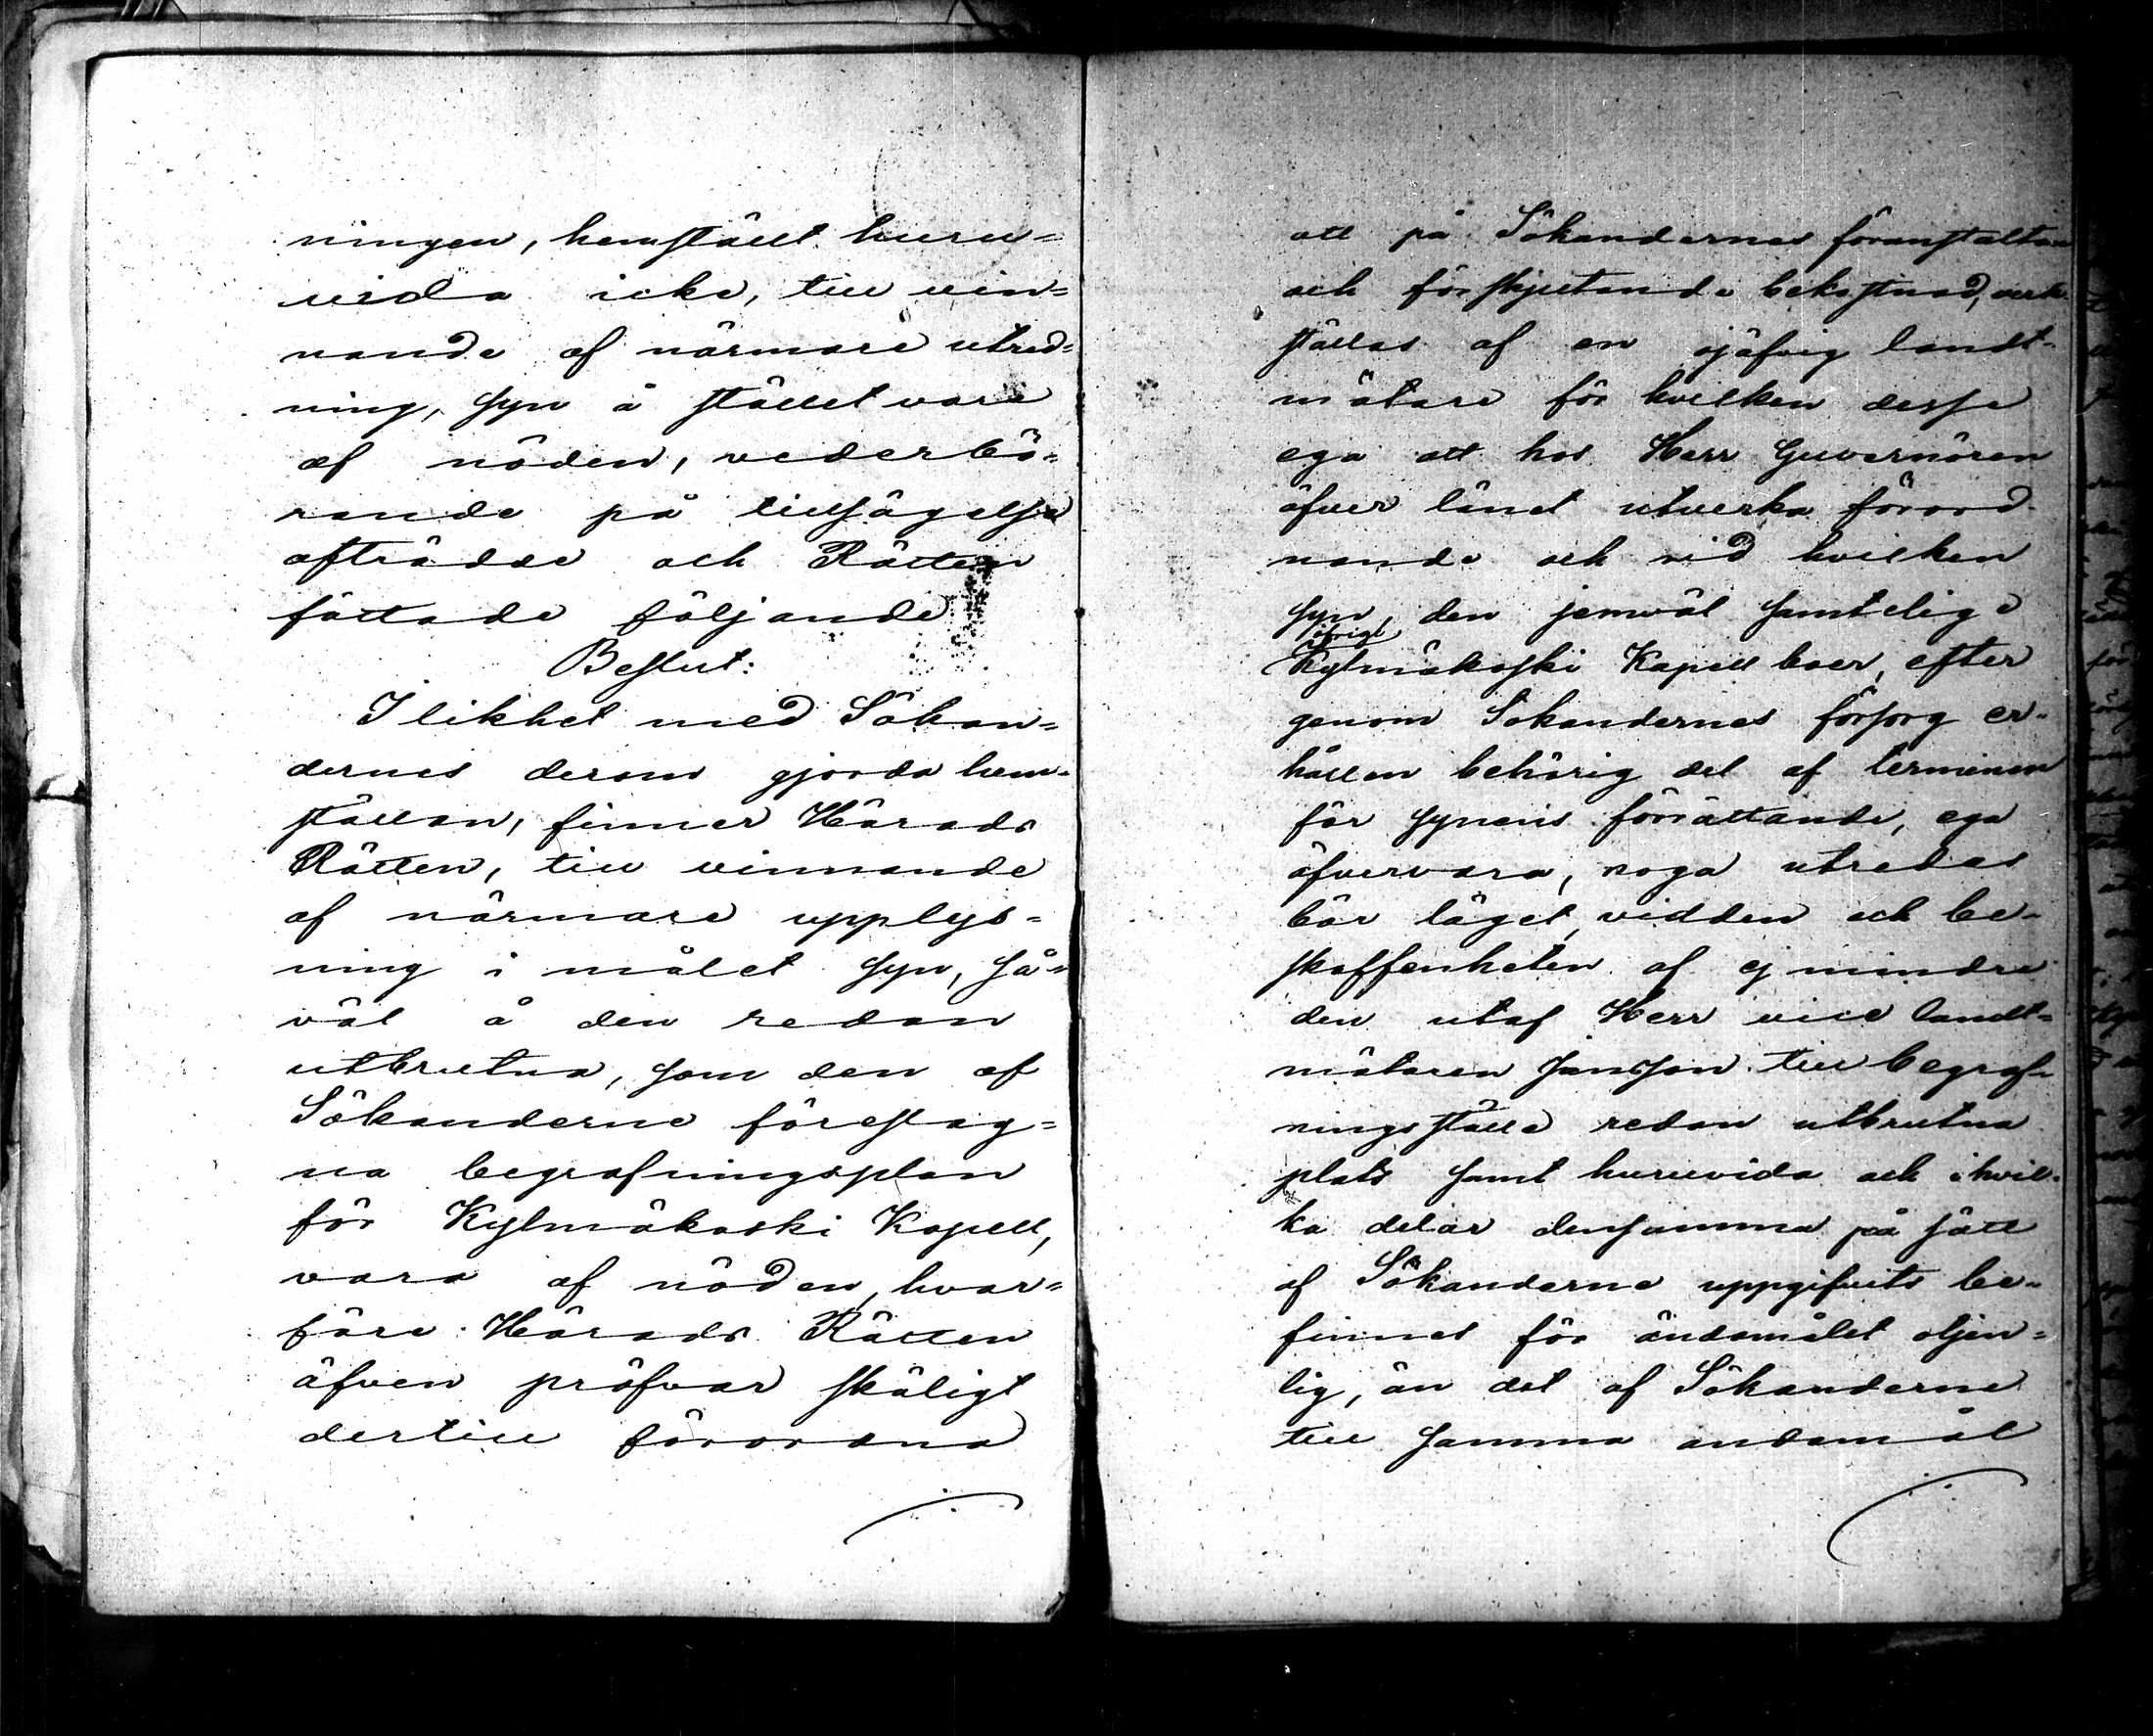 ningen, hemstält huru=
uvida icke, till vin=
nande af närmare utred=
ning, syn å stället vore
af nöden, vederbö=
rande på tillsägelse
afträdde och Rätten
fattade följande
Beslut:
I likhet med Sökan=
dernes derom gjorda hem=
ställan, finner Härads
Rätten, till vinnande
af närmare upplys=
ning i målet syn, så=
väl å den redan
utbrutna, som den af
Sökanderne föreslag=
na begrafningsplan
för Kylmäkoski Kapell,
vara af nöden, hvar=
före Härads Rätten
äfven pröfvar skäligt
dertill förordna
att på Sökandernes föranstaltan
och förskjutande bekostnad, verk-
ställas af en ojäfvig landt-
mätare för hvilken desse
ega att hos Herr Guvernören
öfver länet utverka förord-
nande och vid hvilken
syn, den jemväl samtelige
öfrige
Kylmäkoski Kapellboer, efter
genom Sökandernes försorg er-
hållen behörig del af terminen
för synens förrättande, ega
öfvervara, noga utredas
bör läget, vidden och be-
skaffenheten af ej mindre
den utaf Herr vice landt=
mätaren Jansson till begraf-
ningsställe redan utbrutna
plats samt huruvida och i hvil-
ka delar densamma på sätt
af Sökanderne uppgifvits be-
finnes för ändamålet otjen=
lig, än det af Sökanderne
till samma ändamål